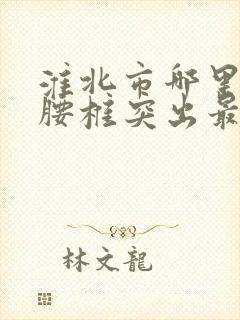 淮北市哪里
腰柱突出最
林文龍